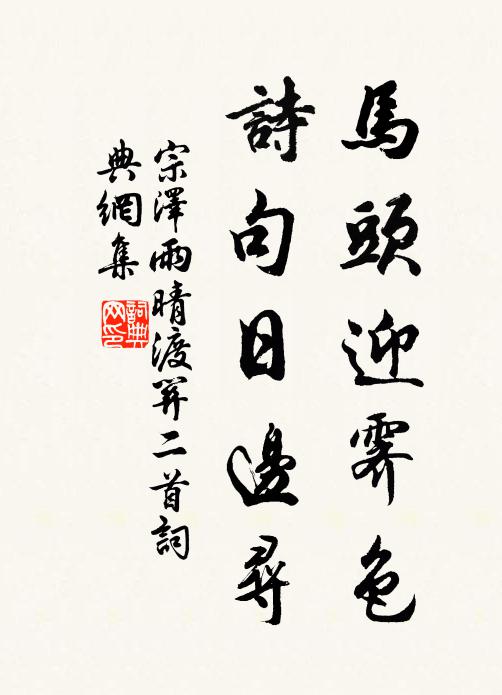 馬頭迎霽色
詩句日邊尋
宗澤雨晴渡關二首詞
典網集
詞典網印